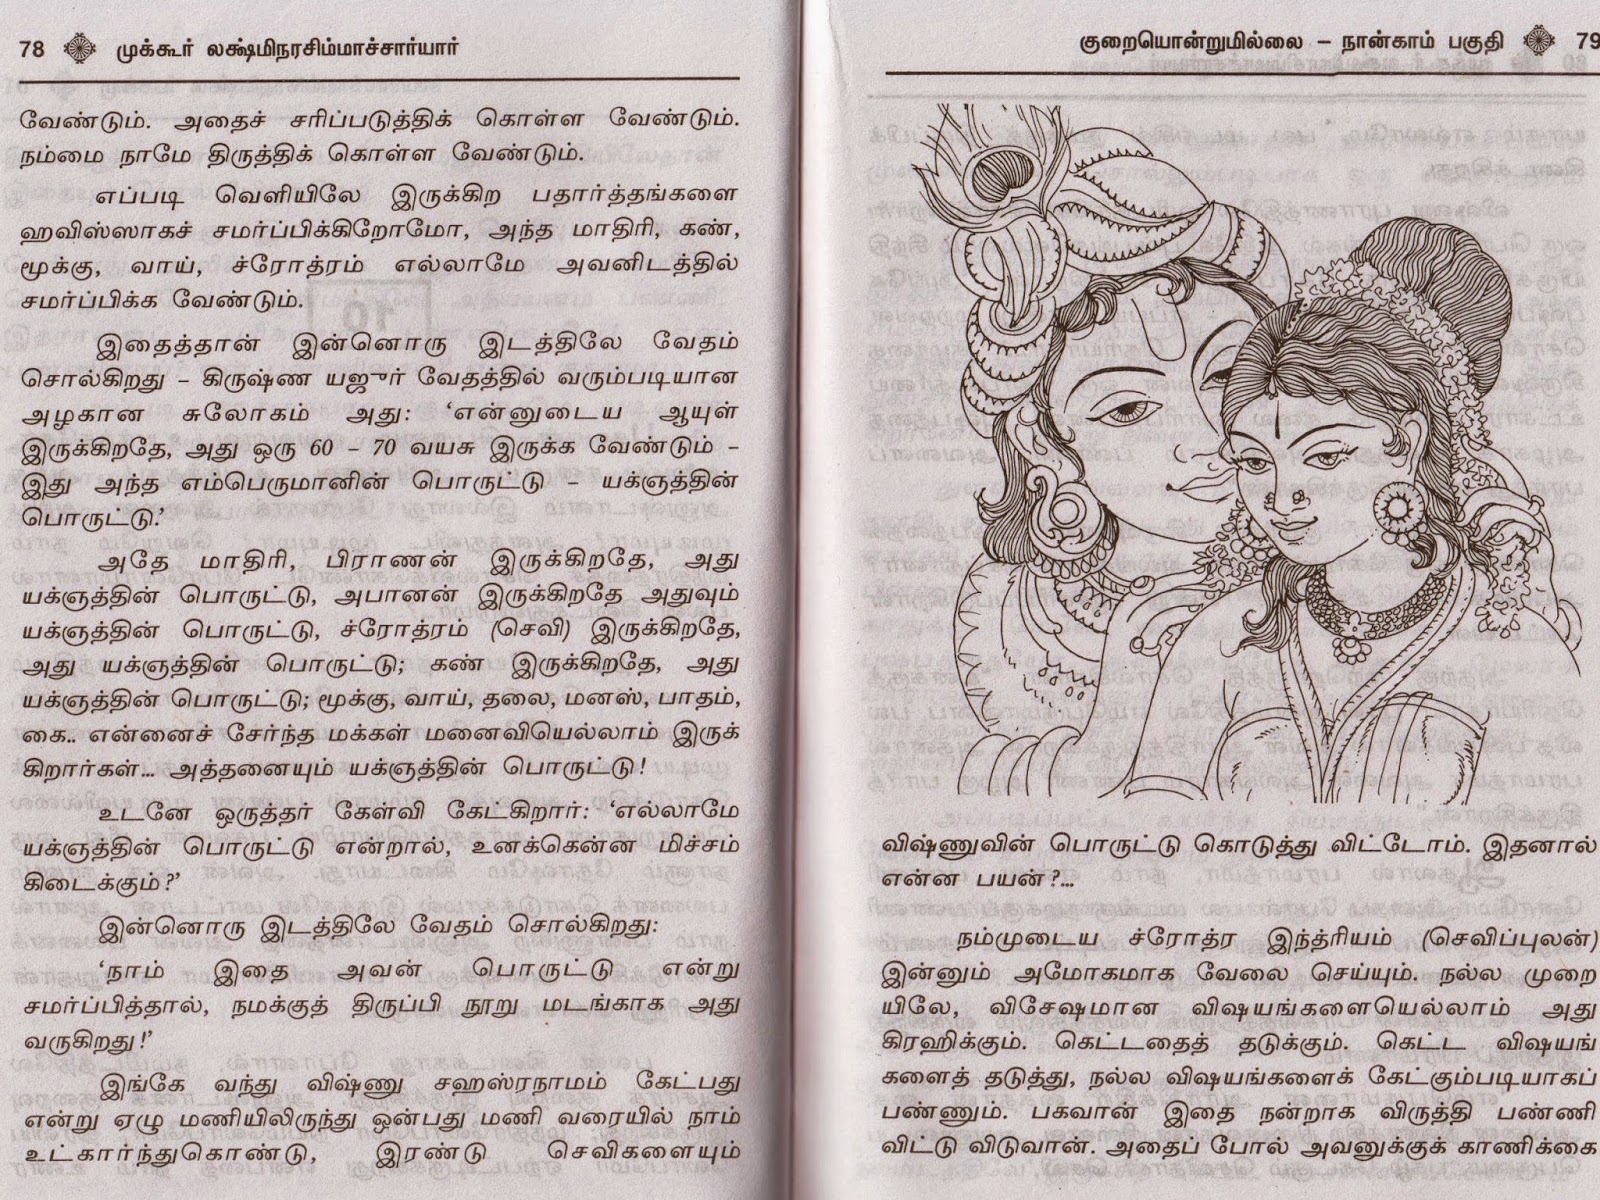 78 முக்கூர் லக்ஷ்மிநரசிம்மாச்சார்யார்
வேண்டும். அதைச் சரிப்படுத்திக் கொள்ள வேண்டும்.
நம்மை நாமே திருத்திக் கொள்ள வேண்டும்.
எப்படி வெளியிலே இருக்கிற பதார்த்தங்களை
ஹவிஸ்ஸாகச் சமர்ப்பிக்கிறோமோ, அந்த மாதிரி, கண்,
மூக்கு, வாய், ச்ரோத்ரம் எல்லாமே அவனிடத்தில்
சமர்ப்பிக்க வேண்டும்.
இதைத்தான் இன்னொரு இடத்திலே வேதம்
சொல்கிறது – கிருஷ்ண யஜுர் வேதத்தில் வரும்படியான
அழகான சுலோகம் அது: ‘என்னுடைய ஆயுள்
இருக்கிறதே, அது ஒரு 60 – 70 வயசு இருக்க வேண்டும் –
இது அந்த எம்பெருமானின் பொருட்டு – யக்ஞத்தின்
பொருட்டு.’
அதே மாதிரி, பிராணன் இருக்கிறதே, அது
யக்ஞத்தின் பொருட்டு, அபானன் இருக்கிறதே அதுவும்
யக்ஞத்தின் பொருட்டு, ச்ரோத்ரம் (செவி) இருக்கிறதே,
அது யக்ஞத்தின் பொருட்டு; கண் இருக்கிறதே, அது
யக்ஞத்தின் பொருட்டு; மூக்கு, வாய், தலை, மனஸ், பாதம்,
கை.. என்னைச் சேர்ந்த மக்கள் மனைவியெல்லாம் இருக்
கிறார்கள்... அத்தனையும் யக்ஞத்தின் பொருட்டு!
உடனே ஒருத்தர் கேள்வி கேட்கிறார்: ‘எல்லாமே
யக்ஞத்தின் பொருட்டு என்றால், உனக்கென்ன மிச்சம்
கிடைக்கும்?’
இன்னொரு இடத்திலே வேதம் சொல்கிறது:
‘நாம் இதை அவன் பொருட்டு என்று
சமர்ப்பித்தால், நமக்குத் திருப்பி நூறு மடங்காக அது
வருகிறது!’
இங்கே வந்து விஷ்ணு சஹஸ்ரநாமம் கேட்பது
என்று ஏழு மணியிலிருந்து ஒன்பது மணி வரையில் நாம்
உட்கார்ந்துகொண்டு, இரண்டு செவிகளையும்
குறையொன்றுமில்லை – நான்காம் பகுதி 79
விஷ்ணுவின் பொருட்டு கொடுத்து விட்டோம். இதனால்
என்ன பயன்?...
நம்முடைய ச்ரோத்ர இந்த்ரியம் (செவிப்புலன்)
இன்னும் அமோகமாக வேலை செய்யும். நல்ல முறை
யிலே, விசேஷமான விஷயங்களையெல்லாம் அது
கிரஹிக்கும். கெட்டதைத் தடுக்கும். கெட்ட விஷயங்
களைத் தடுத்து, நல்ல விஷயங்களைக் கேட்கும்படியாகப்
பண்ணும். பகவான் இதை நன்றாக விருத்தி பண்ணி
விட்டு விடுவான். அதைப் போல் அவனுக்குக் காணிக்கை